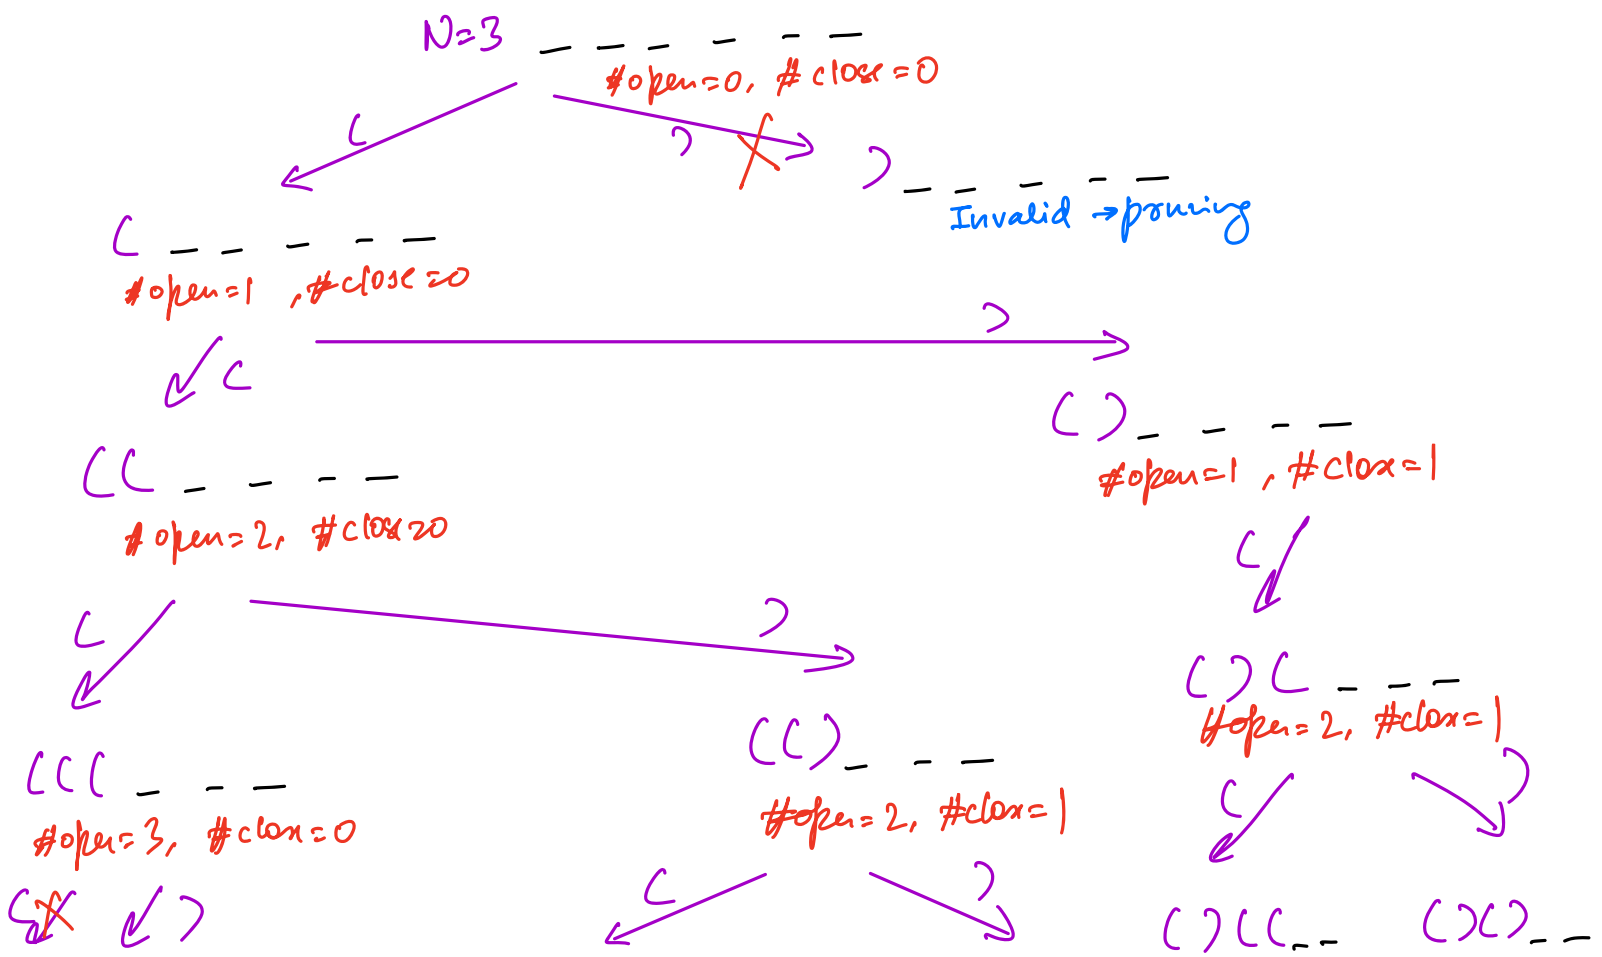 N=3 _ _ _ _ _ _
#open=0, #close=0
( )
) _ _ _ _ _
Invalid → pruning
( _ _ _ _ _
#open=1 , #close=0
)
(
( ) _ _ _ _
#open=1 , #close=1
(( _ _ _ _
#open=2, #close=0
(
( )
( ) ( _ _ _
#open=2, #close=1
(( ) _ _ _
#open=2, #close=1
((( _ _ _
#open=3, #close=0
( )
( )
( )
( ) (( _ _
( ) ( ) _ _